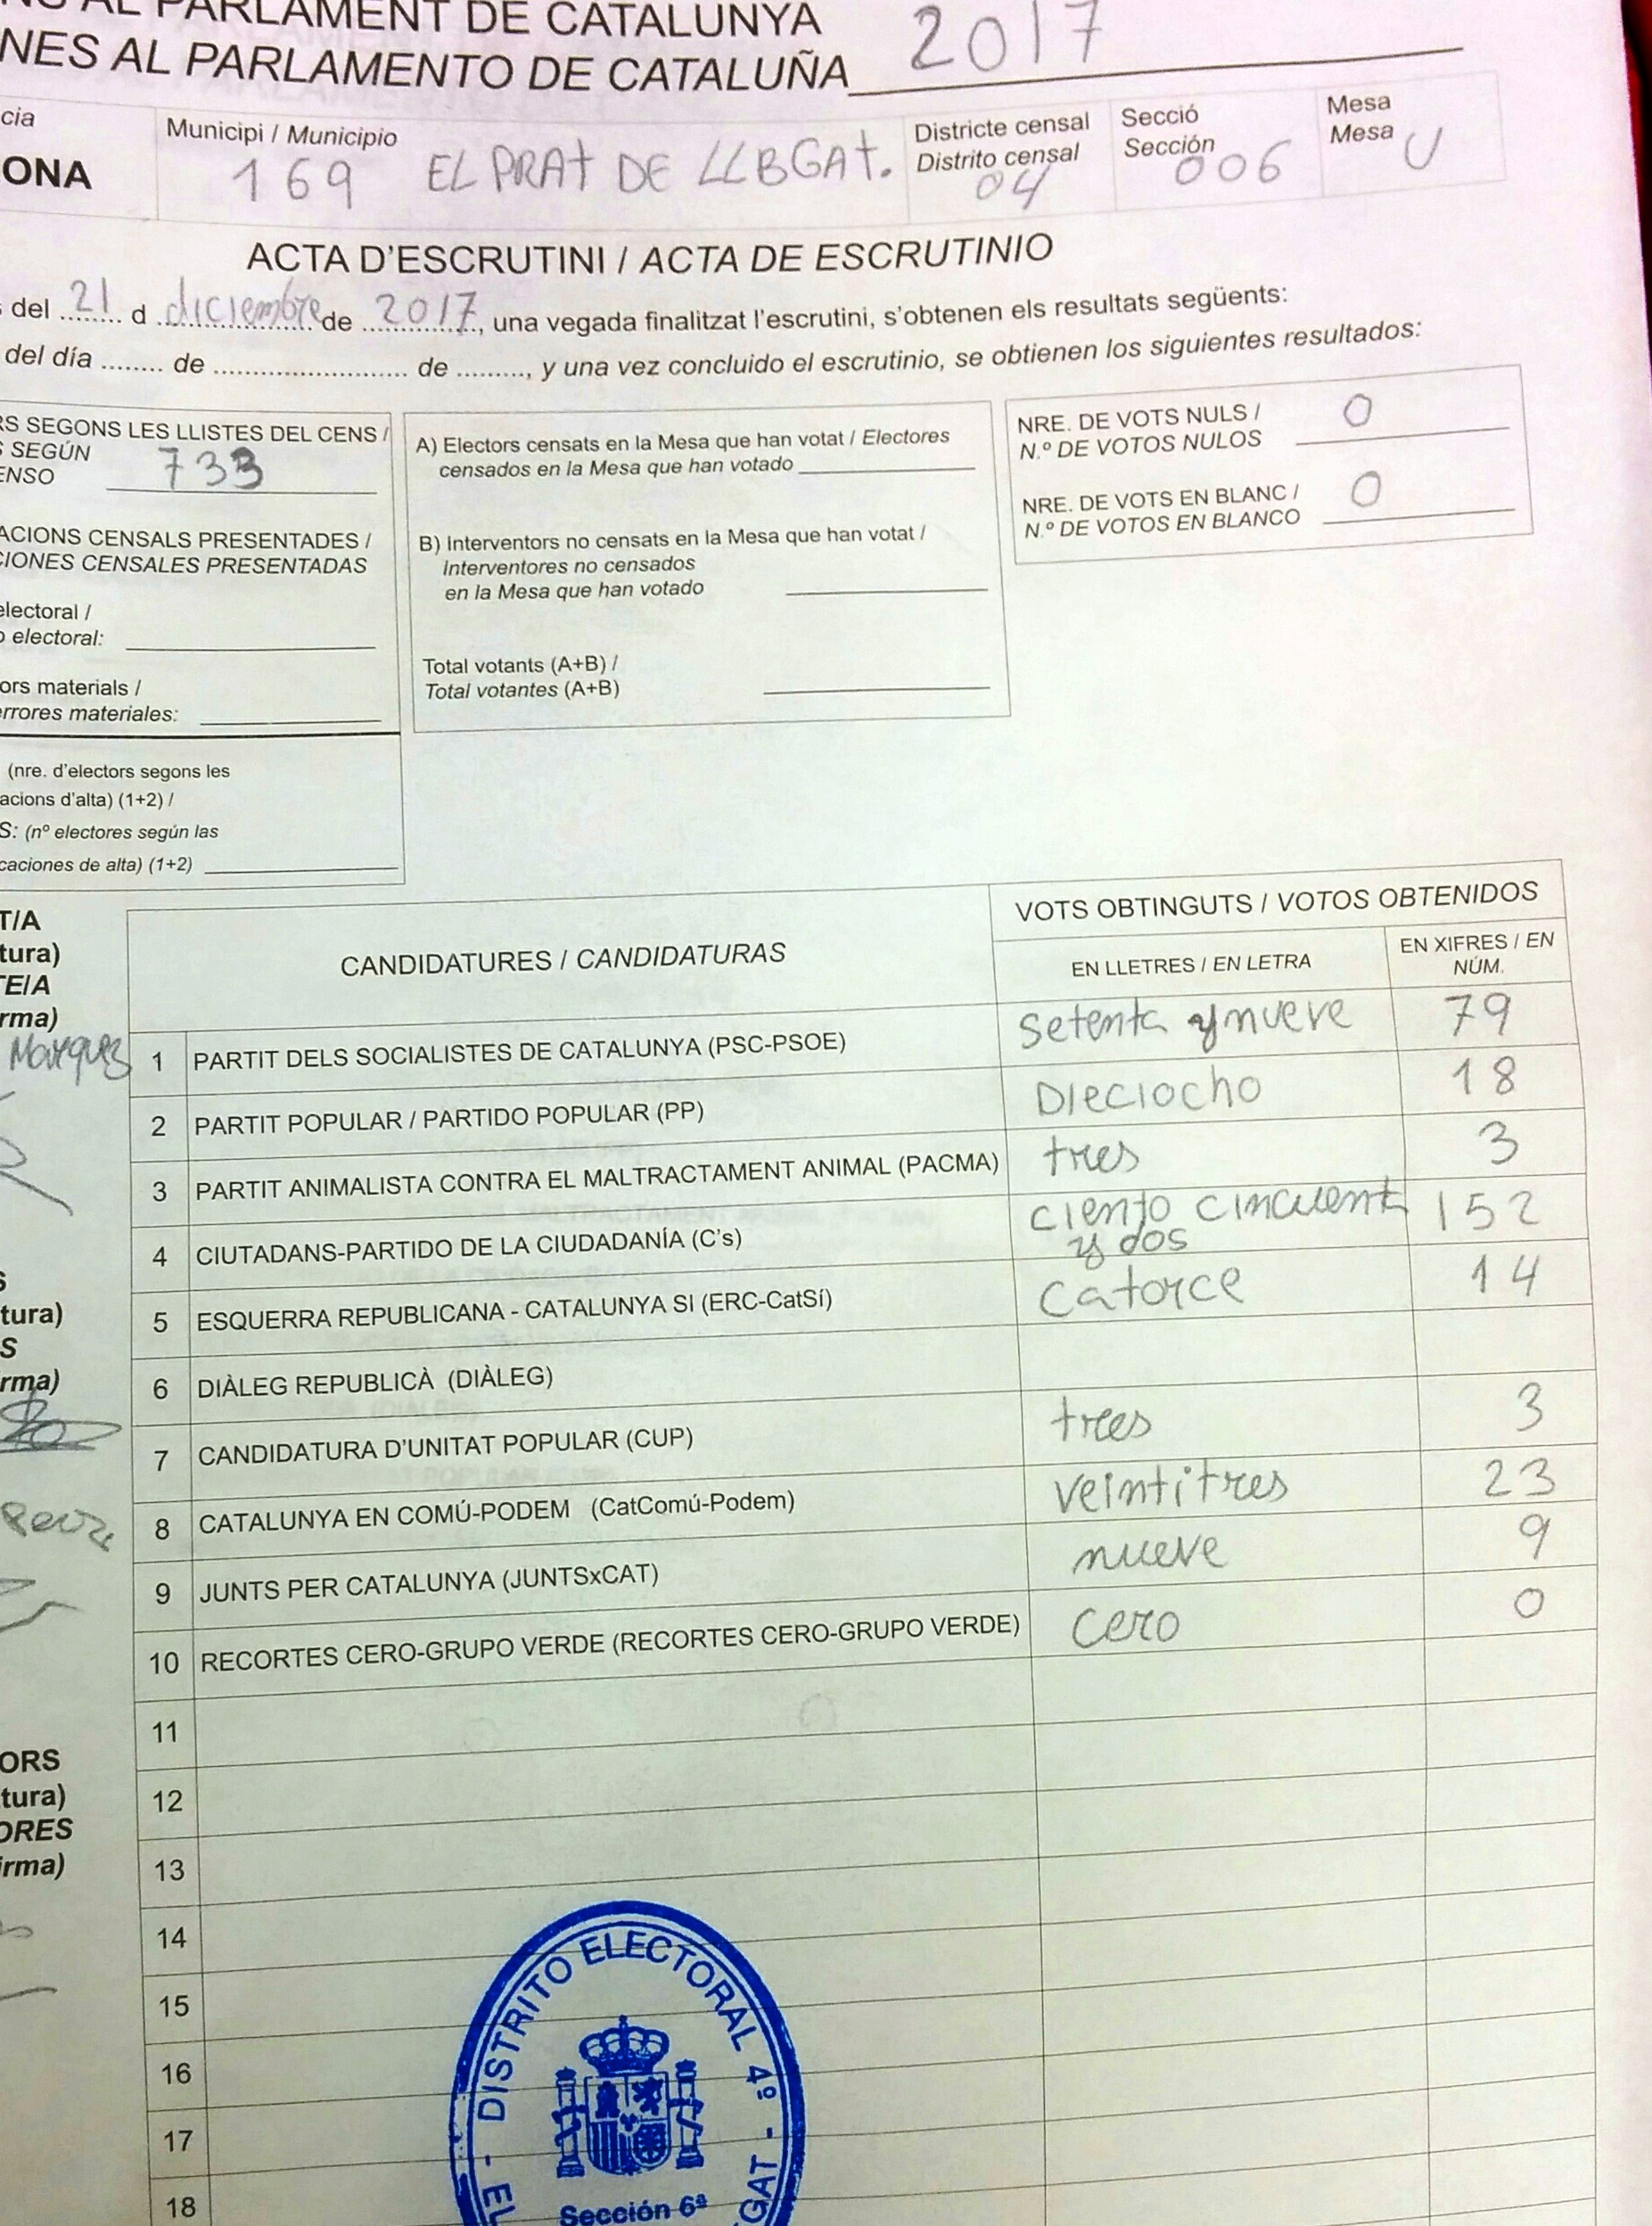 NS AL PARLAMENT DE CATALUNYA
NES AL PARLAMENTO DE CATALUÑA 2017
cia
ONA
Municipi / Municipio
169 EL PRAT DE LLBGAT.
Districte censal
Distrito censal
04
Secció
Sección
006
Mesa
Mesa U
ACTA D'ESCRUTINI / ACTA DE ESCRUTINIO
del 21 d diciembre de 2017, una vegada finalitzat l'escrutini, s'obtenen els resultats següents:
del día ........ de ........................ de ........., y una vez concluido el escrutinio, se obtienen los siguientes resultados:
RS SEGONS LES LLISTES DEL CENS /
S SEGÚN
ENSO 733
ACIONS CENSALS PRESENTADES /
CIONES CENSALES PRESENTADAS
electoral /
o electoral:
ors materials /
errores materiales:
(nre. d'electors segons les
acions d'alta) (1+2) /
S: (nº electores según las
caciones de alta) (1+2)
A) Electors censats en la Mesa que han votat / Electores
censados en la Mesa que han votado
B) Interventors no censats en la Mesa que han votat /
Interventores no censados
en la Mesa que han votado
Total votants (A+B) /
Total votantes (A+B)
NRE. DE VOTS NULS /
N.º DE VOTOS NULOS 0
NRE. DE VOTS EN BLANC /
N.º DE VOTOS EN BLANCO 0
T/A
tura)
TE/A
rma)
Marquez
S
tura)
S
rma)
ORS
tura)
ORES
irma)
CANDIDATURES / CANDIDATURAS
VOTS OBTINGUTS / VOTOS OBTENIDOS
EN LLETRES / EN LETRA
EN XIFRES / EN
NÚM.
1 PARTIT DELS SOCIALISTES DE CATALUNYA (PSC-PSOE) Setenta y nueve 79
2 PARTIT POPULAR / PARTIDO POPULAR (PP) Dieciocho 18
3 PARTIT ANIMALISTA CONTRA EL MALTRACTAMENT ANIMAL (PACMA) tres 3
4 CIUTADANS-PARTIDO DE LA CIUDADANÍA (C's) ciento cincuenta 152
y dos
5 ESQUERRA REPUBLICANA - CATALUNYA SI (ERC-CatSí) Catorce 14
6 DIÀLEG REPUBLICÀ (DIÀLEG)
7 CANDIDATURA D'UNITAT POPULAR (CUP) tres 3
8 CATALUNYA EN COMÚ-PODEM (CatComú-Podem) veintitres 23
9 JUNTS PER CATALUNYA (JUNTSxCAT) nueve 9
10 RECORTES CERO-GRUPO VERDE (RECORTES CERO-GRUPO VERDE) Cero 0
11
12
13
14
15
16
17
18
DISTRITO ELECTORAL 4º
EL
GAT
Sección 6ª